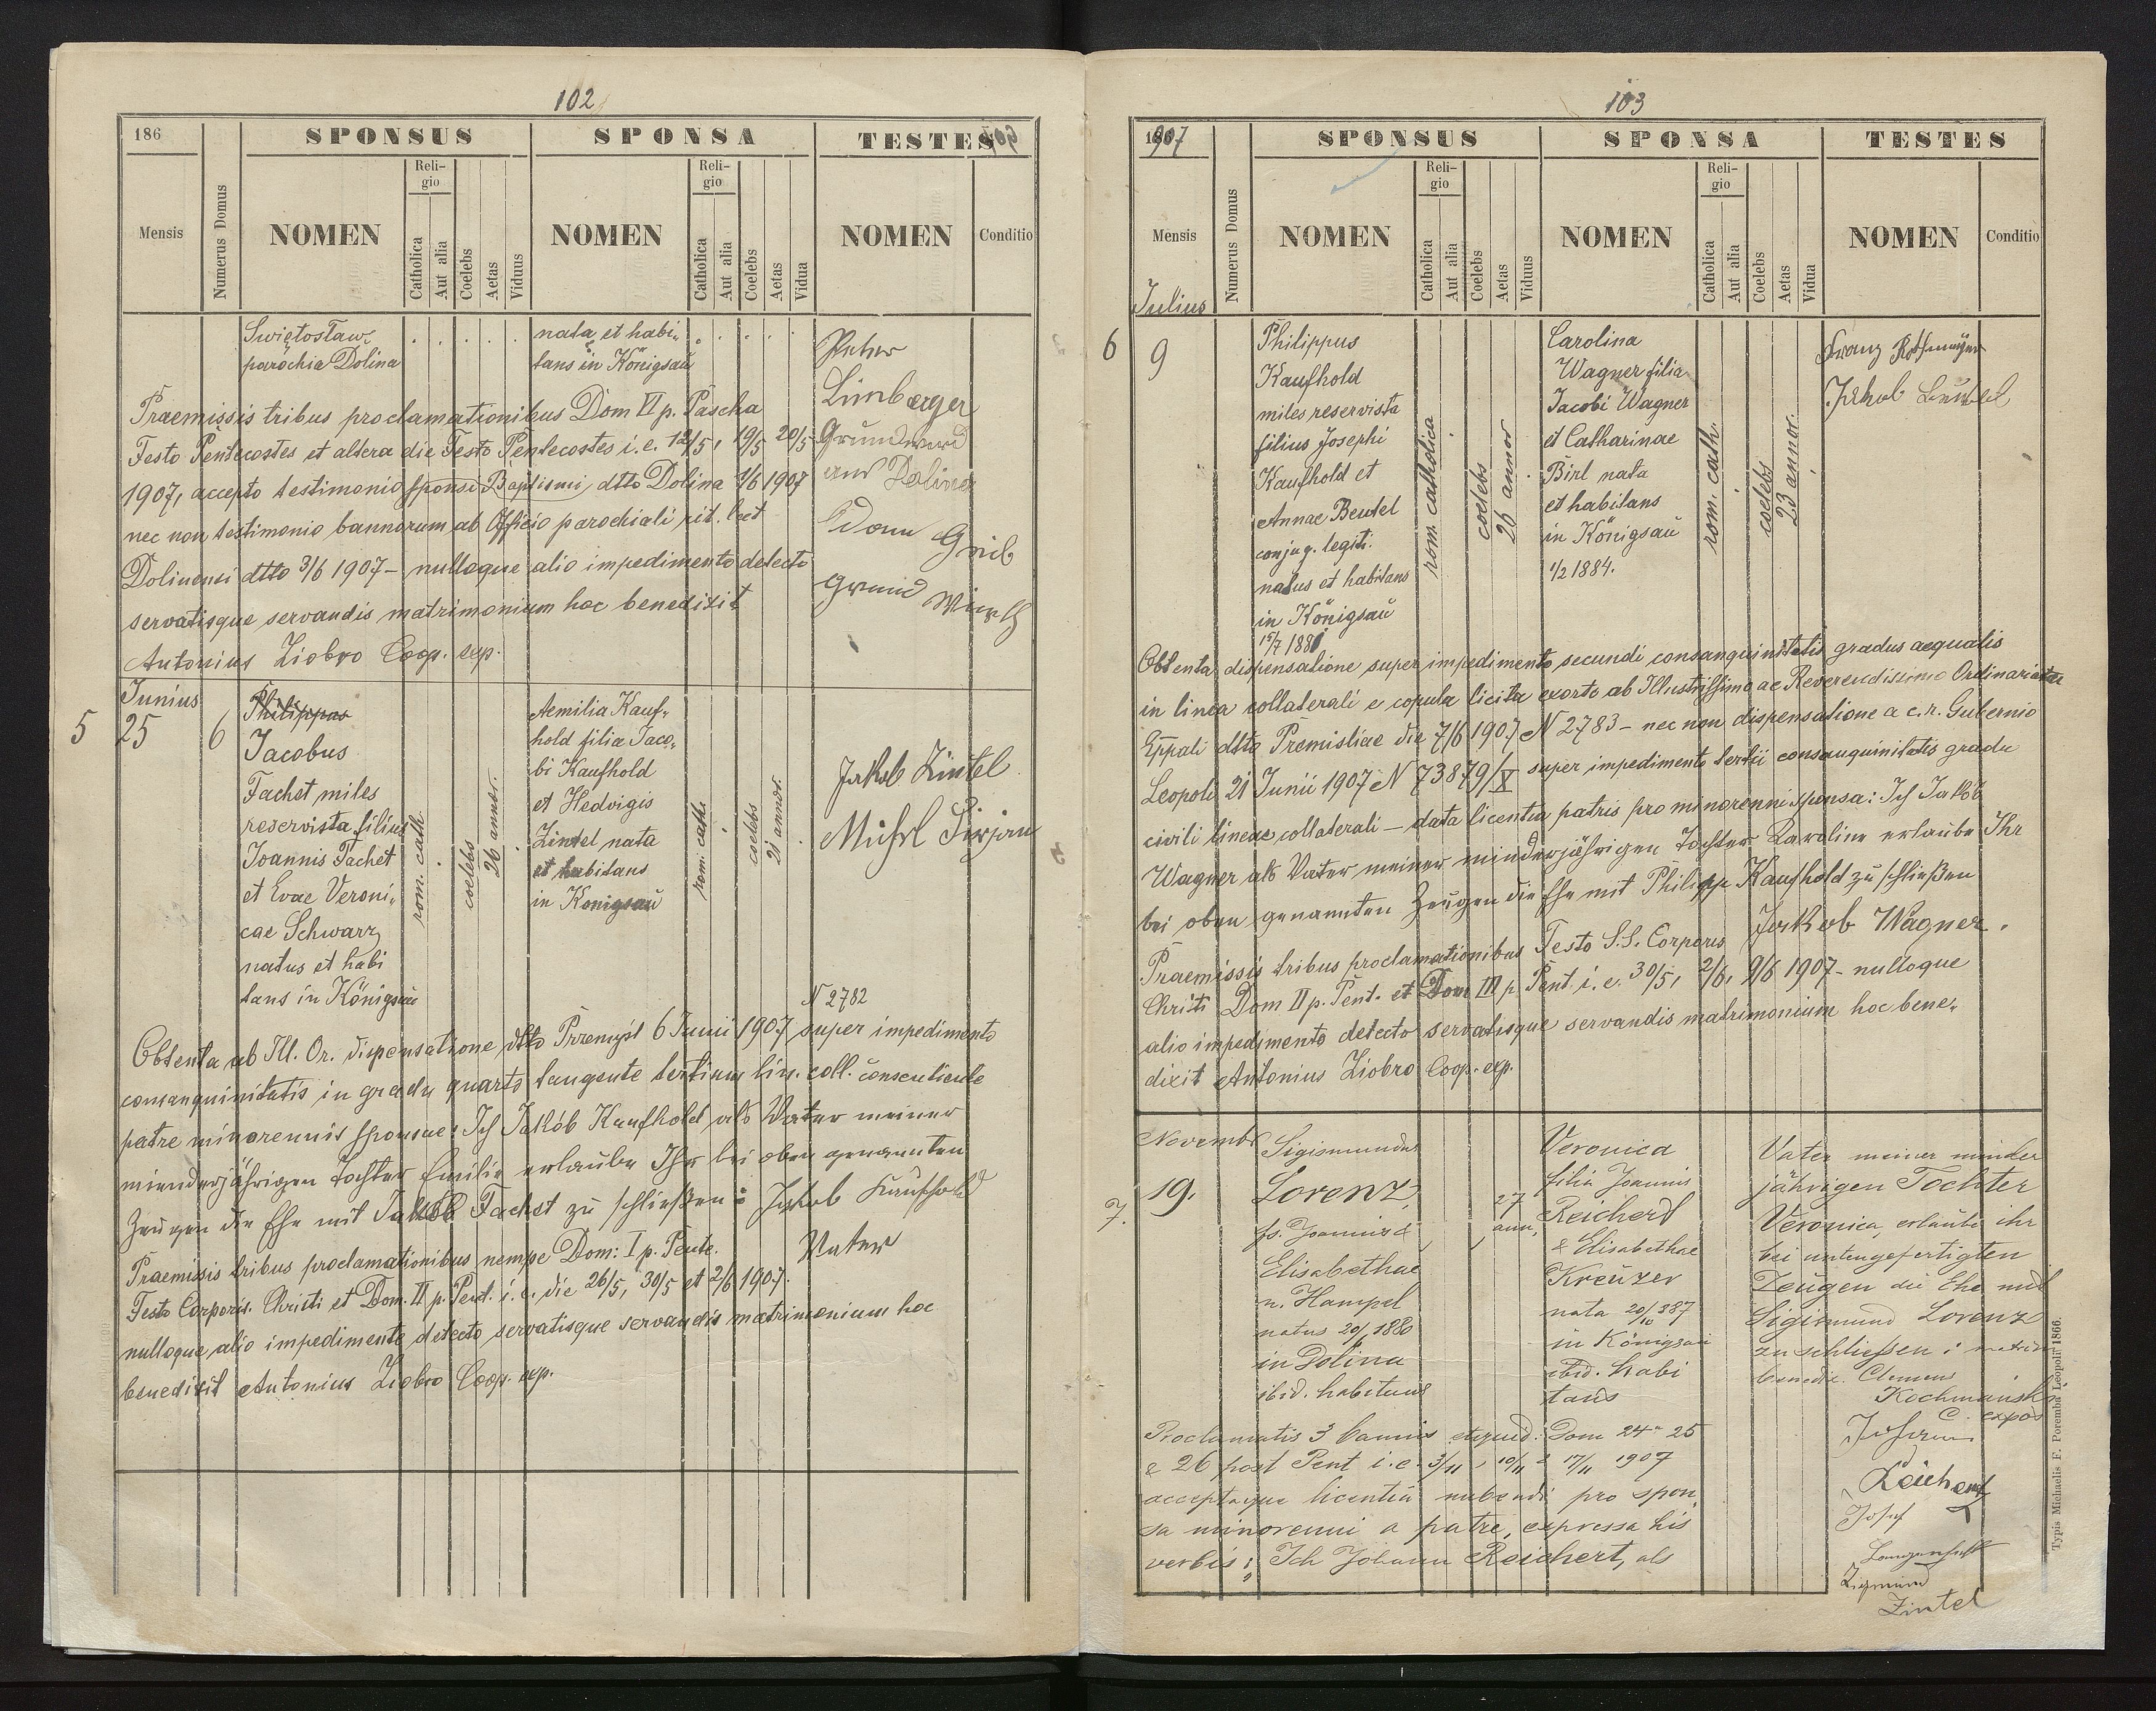 102
186
SPONSUS
SPONSA
TESTES
Mensis
Numerus Domus
NOMEN
Religio
Catholica
Aut alia
Coelebs
Aetas
Viduus
NOMEN
Religio
Catholica
Aut alia
Coelebs
Aetas
Vidua
NOMEN
Conditio
Swiętosław
parochia Dolina
nata et habi-
tans in Königsau
Peter
Limberger
Grundwird
aus Dolina
Adam Grieb
Grund Wirth
Praemissis tribus proclamationibus Dom VI p. Pascha
Festo Pentecostes et altera die Festo Pentecostes i.e. 12/5, 19/5 20/5
1907, accepto testimonio sponsi Baptismi dtto Dolina 1/6 1907
nec non testimonio bannorum ab Officio parochiali rit. lat
Dolinensi dtto 3/6 1907 – nulloque alio impedimento detecto
servatisque servandis matrimonium hoc benedixit
Antonius Ziobro Coop. exp.
Junius
5
25
6
Philippus
Jacobus
Fachet miles
reservista filius
Joannis Fachet
et Evae Veroni-
cae Schwarz
natus et habi
tans in Königsau
rom. cath.
coelebs
26 annor.
Aemilia Kauf-
hold filia Jaco-
bi Kaufhold
et Hedvigis
Zintel nata
et habitans
in Konigsau
rom. cath.
coelebs
21 annor.
Jakob Zintel
Michl Dirjan
N 2782
Obtenta ab Ill. Or. dispensatione dtto Przemyśl 6 Junii 1907 super impedimento
consanguinitatis in gradu quarto tangente tertium lin. coll. consentiente
patre minorennis sponsae: Ich Jakób Kaufhold als Vater meiner
minderjährigen Tochter Emilie erlaube Ihr bei oben genannten
Zeugen die Ehe mit Jakob Fachet zu schließen: Jakob Kaufhold
Vater
Praemissis tribus proclamationibus nempe Dom: I p. Pente.
Festo Corporis. Christi et Dom. II p. Pent. i. e. die 26/5, 30/5 et 2/6 1907.
nulloque alio impedimente detecto servatisque servandis matrimonium hoc
benedixit Antonius Ziobro Coop. exp.
103
1907
SPONSUS
SPONSA
TESTES
Mensis
Numerus Domus
NOMEN
Religio
Catholica
Aut alia
Coelebs
Aetas
Viduus
NOMEN
Religio
Catholica
Aut alia
Coelebs
Aetas
Vidua
NOMEN
Conditio
Julius
6
9
Philippus
Kaufhold
miles reservista
filius Josephi
Kaufhold et
Annae Beutel
conjug. legiti.
natus et habitans
in Königsau
rom. catholica
coelebs
26 annor
Carolina
Wagner filia
Jacobi Wagner
et Catharinae
Birl nata
et habitans
in Königsau
1/2 1884.
rom. cath.
coelebs
23 annor.
Franz Rothmayer
Jakob Beutel
Obtenta dispensatione super impedimento secundi consanguinitatis gradus aequalis
in linea collaterali e copula licita exorto ab Illustrissimo ac Reverendissimo Ordinariatu
Eppali dtto Premisliae die 7/6 1907 N 2783 – nec non dispensatione a c.r. Gubernio
Leopoli 21 Junii 1907 N 73879/X super impedimento tertii consanguinitatis gradu
civili lineae collaterali – data licentia patris pro minorenni sponsa: Ich Jakób
Wagner als Vater meiner minderjährigen Tochter Karoline erlaube Ihr
bei oben genannten Zeugen die Ehe mit Philipp Kaufhold zu schließen
Jakob Wagner.
Praemissis tribus proclamationibus Festo S.S. Corporis
Christi Dom II p. Pent. et Dom III p. Pent i. e. 30/5, 2/6, 9/6 1907 – nulloque
alio impedimento detecto servatisque servandis matrimonium hoc bene-
dixit Antonius Ziobro Coop. exp.
Novembr
7.
19.
Sigismundus
Lorenz,
fs. Joannis &
Elisabethae
n. Hampel
natus 20/1 1880
in Dolina
ibid. habitans
27
ann.
Veronica
filia Joannis
Reichert
& Elisabethae
Kreuzer
nata 20/10 887
in Königsau
ibid. habi
tans
Vater meiner minder
jährigen Tochter
Veronica, erlaube ihr
bei untengefertigten
Zeugen die Ehe mit
Sigismund Lorenz
zu schliessen; matrim
benedix. Clemens
Kochmański
C. expos
Proclamatis 3 bannis Dom 24 25
& 26 post Pent i. e. 3/11, 10/11 & 17/11 1907
acceptaque licentia nubendi pro spon-
sa minorenni a patre, expressa his
verbis: Ich Johann Reichert, als
Johann
Reichert
Josef
Zigmund
Zintel
Typis Michaelis F. Poremba Leopoli 1866.